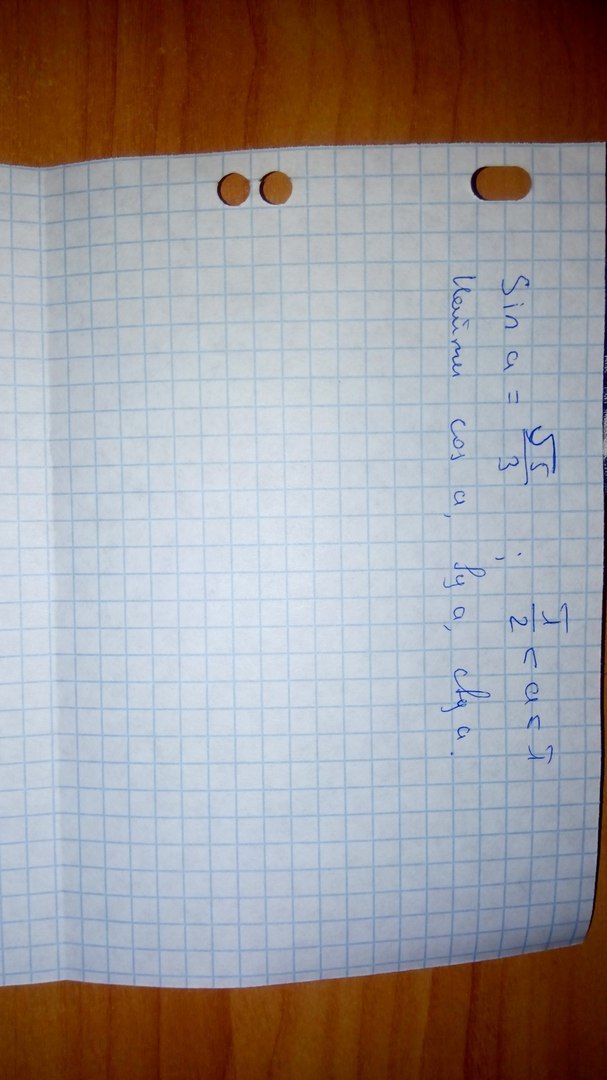 Sin a = √5/3 ; π/2 < a < π
Найти cos a, tg a, ctg a.